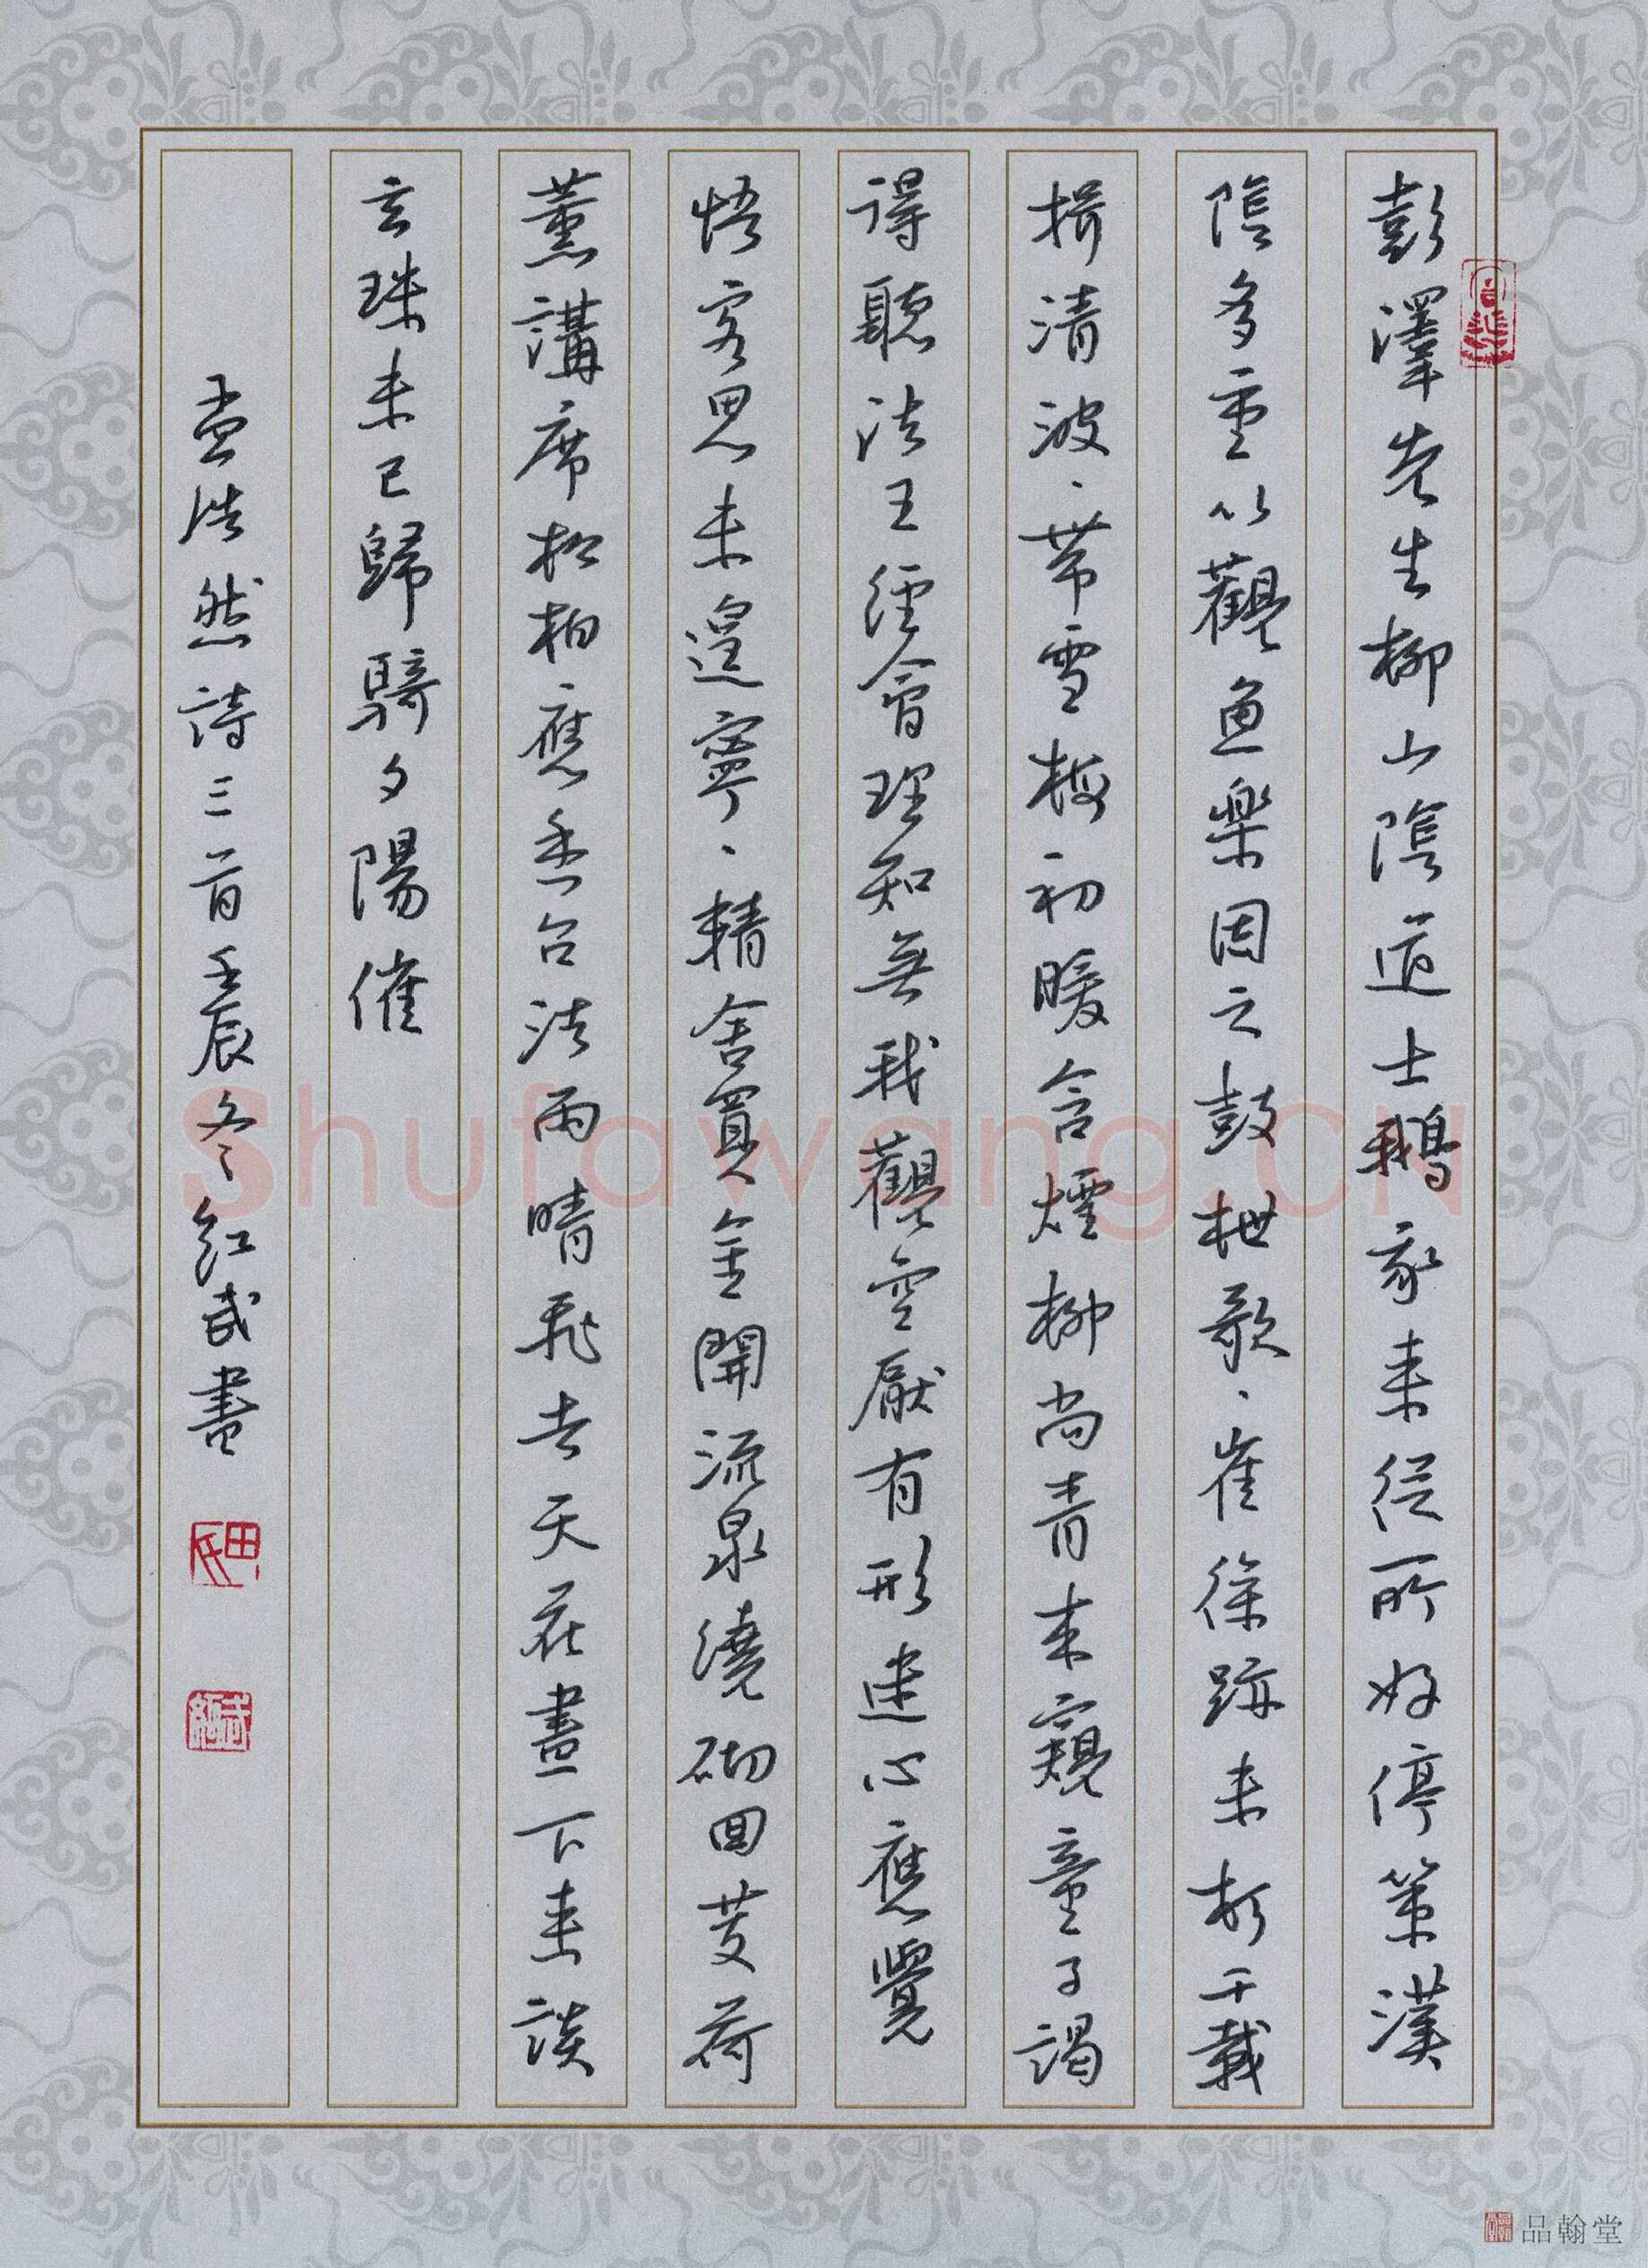 彭澤先生柳山陰道士鵝我來從所好停策漢
陰多重以觀魚樂因之鼓枻歌、崔徐跡未朽千載
揖清波、帶雪梅初暖含煙柳尚青來窺童子謁
得聽法王經會理知無我觀空厭有形迷心應覺
悟客思未遑寧、精舍買金開流泉繞砌回芰荷
薰講席松柏應香台法雨晴飛去天花晝下來談
玄殊未已歸騎夕陽催
孟浩然詩三首壬辰冬紅武書
田氏
品翰堂
Shufawang.CN